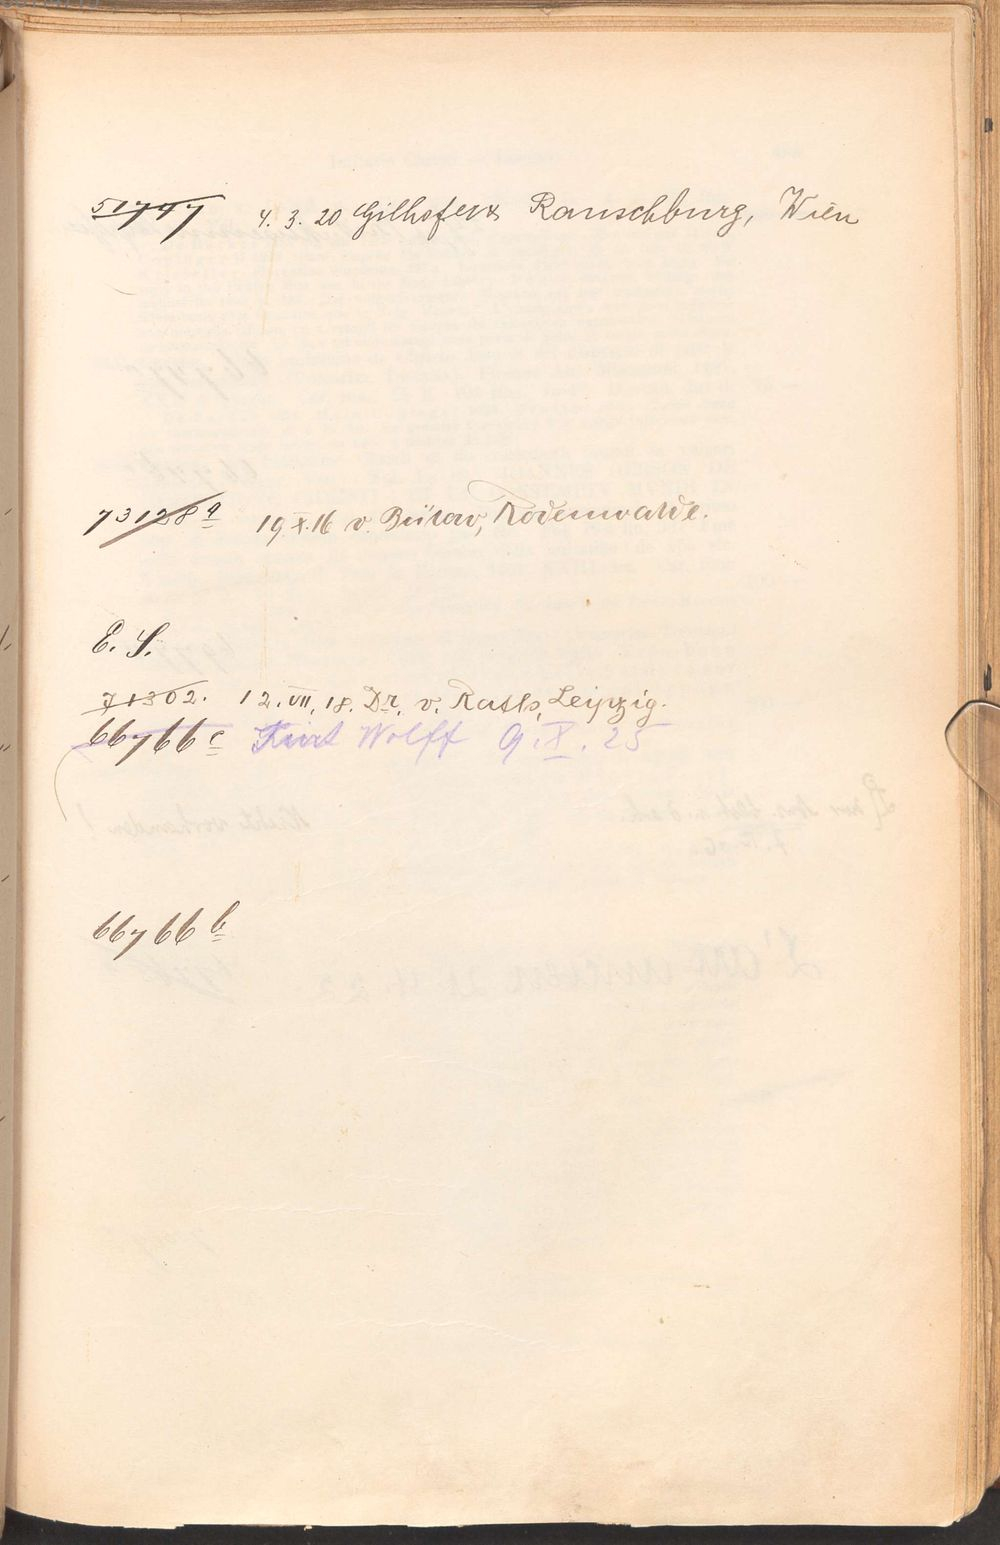 51747 4. 3. 20 Gilhofer & Ranschburg, Wien
73128 a 19.X.16 v. Bülow, Rodenwalde.
E. S.
71302. 12.VII.18. Dr. v. Rath, Leipzig.
66766 c Kurt Wolff 9.X.25
66766 b